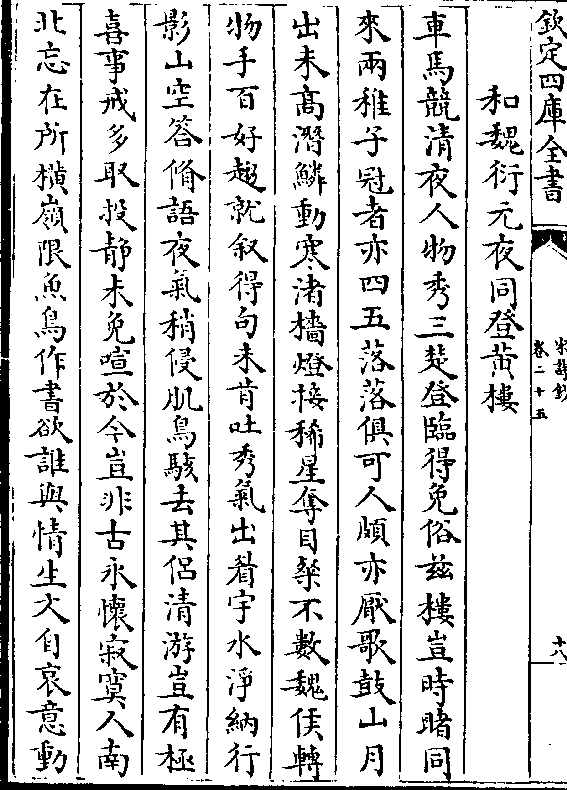 欽定四庫全書
宋詩鈔
卷二十五
十八
和魏衍元夜同登黄樓
車馬競清夜人物秀三楚登臨得免俗兹樓豈時睹同
來兩稚子冠者亦四五落落俱可人頗亦厭歌鼓山月
出未高潛鱗動寒渚檣燈接稀星奪目粲不數魏侯轉
物手百好趨就叙得句未肯吐秀氣出眉宇水淨納行
影山空答脩語夜氣稍侵肌鳥駭去其侣清游豈有極
喜事戒多取投靜未免喧於今豈非古永懷寂寞人南
北忘在所横嶺限魚鳥作書欲誰與情生文自哀意動